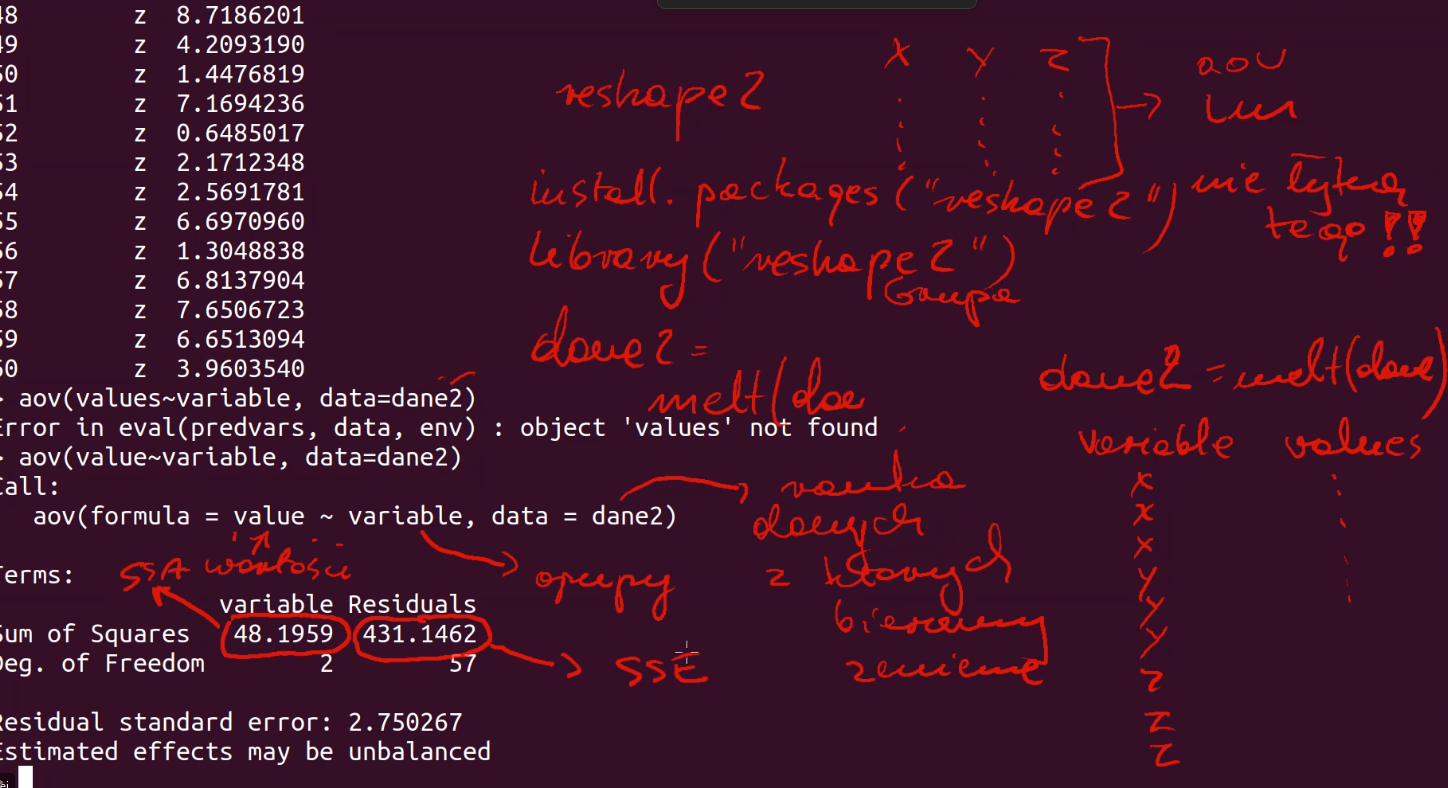 48 z 8.7186201
49 z 4.2093190
50 z 1.4476819
51 z 7.1694236
52 z 0.6485017
53 z 2.1712348
54 z 2.5691781
55 z 6.6970960
56 z 1.3048838
57 z 6.8137904
58 z 7.6506723
59 z 6.6513094
60 z 3.9603540
> aov(values~variable, data=dane2)
Error in eval(predvars, data, env) : object 'values' not found
> aov(value~variable, data=dane2)
Call:
aov(formula = value ~ variable, data = dane2)
Terms:
variable Residuals
Sum of Squares 48.1959 431.1462
Deg. of Freedom 2 57
Residual standard error: 2.750267
Estimated effects may be unbalanced
reshape2
X Y Z
aov
lm
install.packages("reshape2")
nie
tego !!
library("reshape2")
Grupa
dane2 =
melt(da
dane2 = melt(dane)
variable values
x
x
x
y
y
y
z
z
z
SSA wartości
grupy
SSE
ramka
danych
z których
bierzemy
zmienne